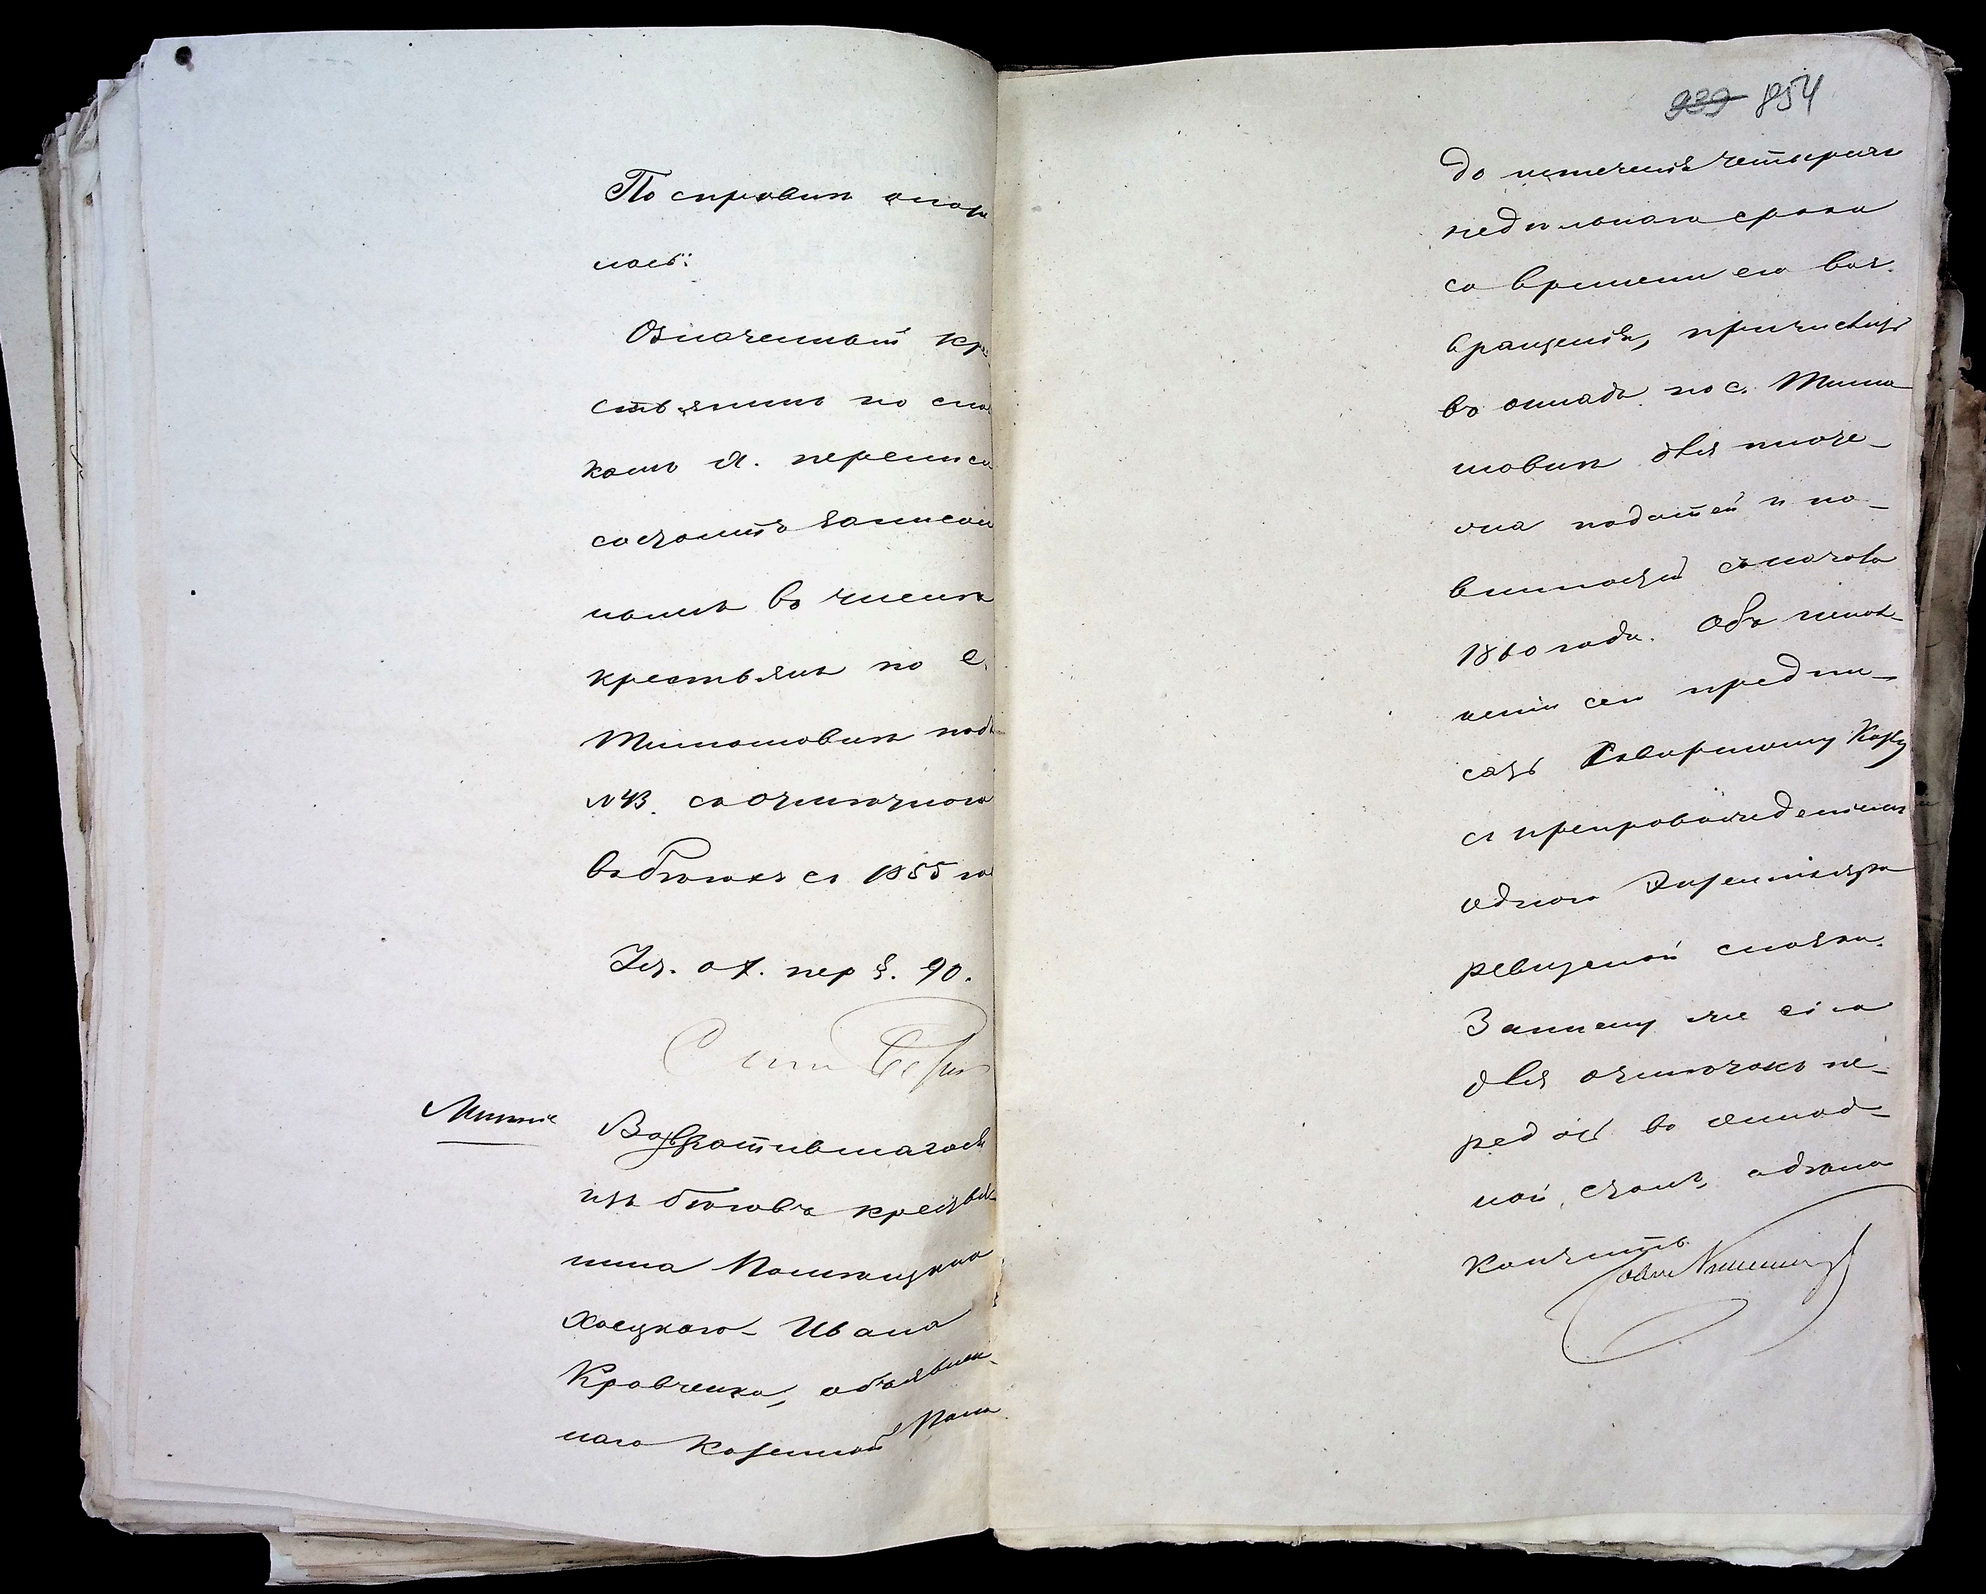 По справкѣ оказа
лось:
Означенный кре
стьянинъ по спис
камъ 9. переписи
состоитъ записан
нымъ въ числѣ
крестьянъ по с.
Тимошовкѣ подъ
№43. съ отмѣткою
въ бѣгахъ съ 1855 го
Ук. о 9. пер §. 90.
Мнѣніе
Возвратившагося
изъ бѣговъ крестья-
нина Помѣщика
Ивана
Кравченка, объявлен-
наго Казенной Пала
939 854
до истеченія четырех
недѣльнаго срока
со времени его воз-
вращенія, причислить
въ окладъ по с. Тимо
шовкѣ для плате-
жа податей и по-
винностей съ начала
1860 года. Объ испол-
неніи сего предпи-
сать Казну
съ препровожденіемъ
одного Экземпляра
ревизской сказки.
Записку же сію
для отмѣтокъ пе-
редать въ Оклад-
ной столъ, а дѣло
кончить.